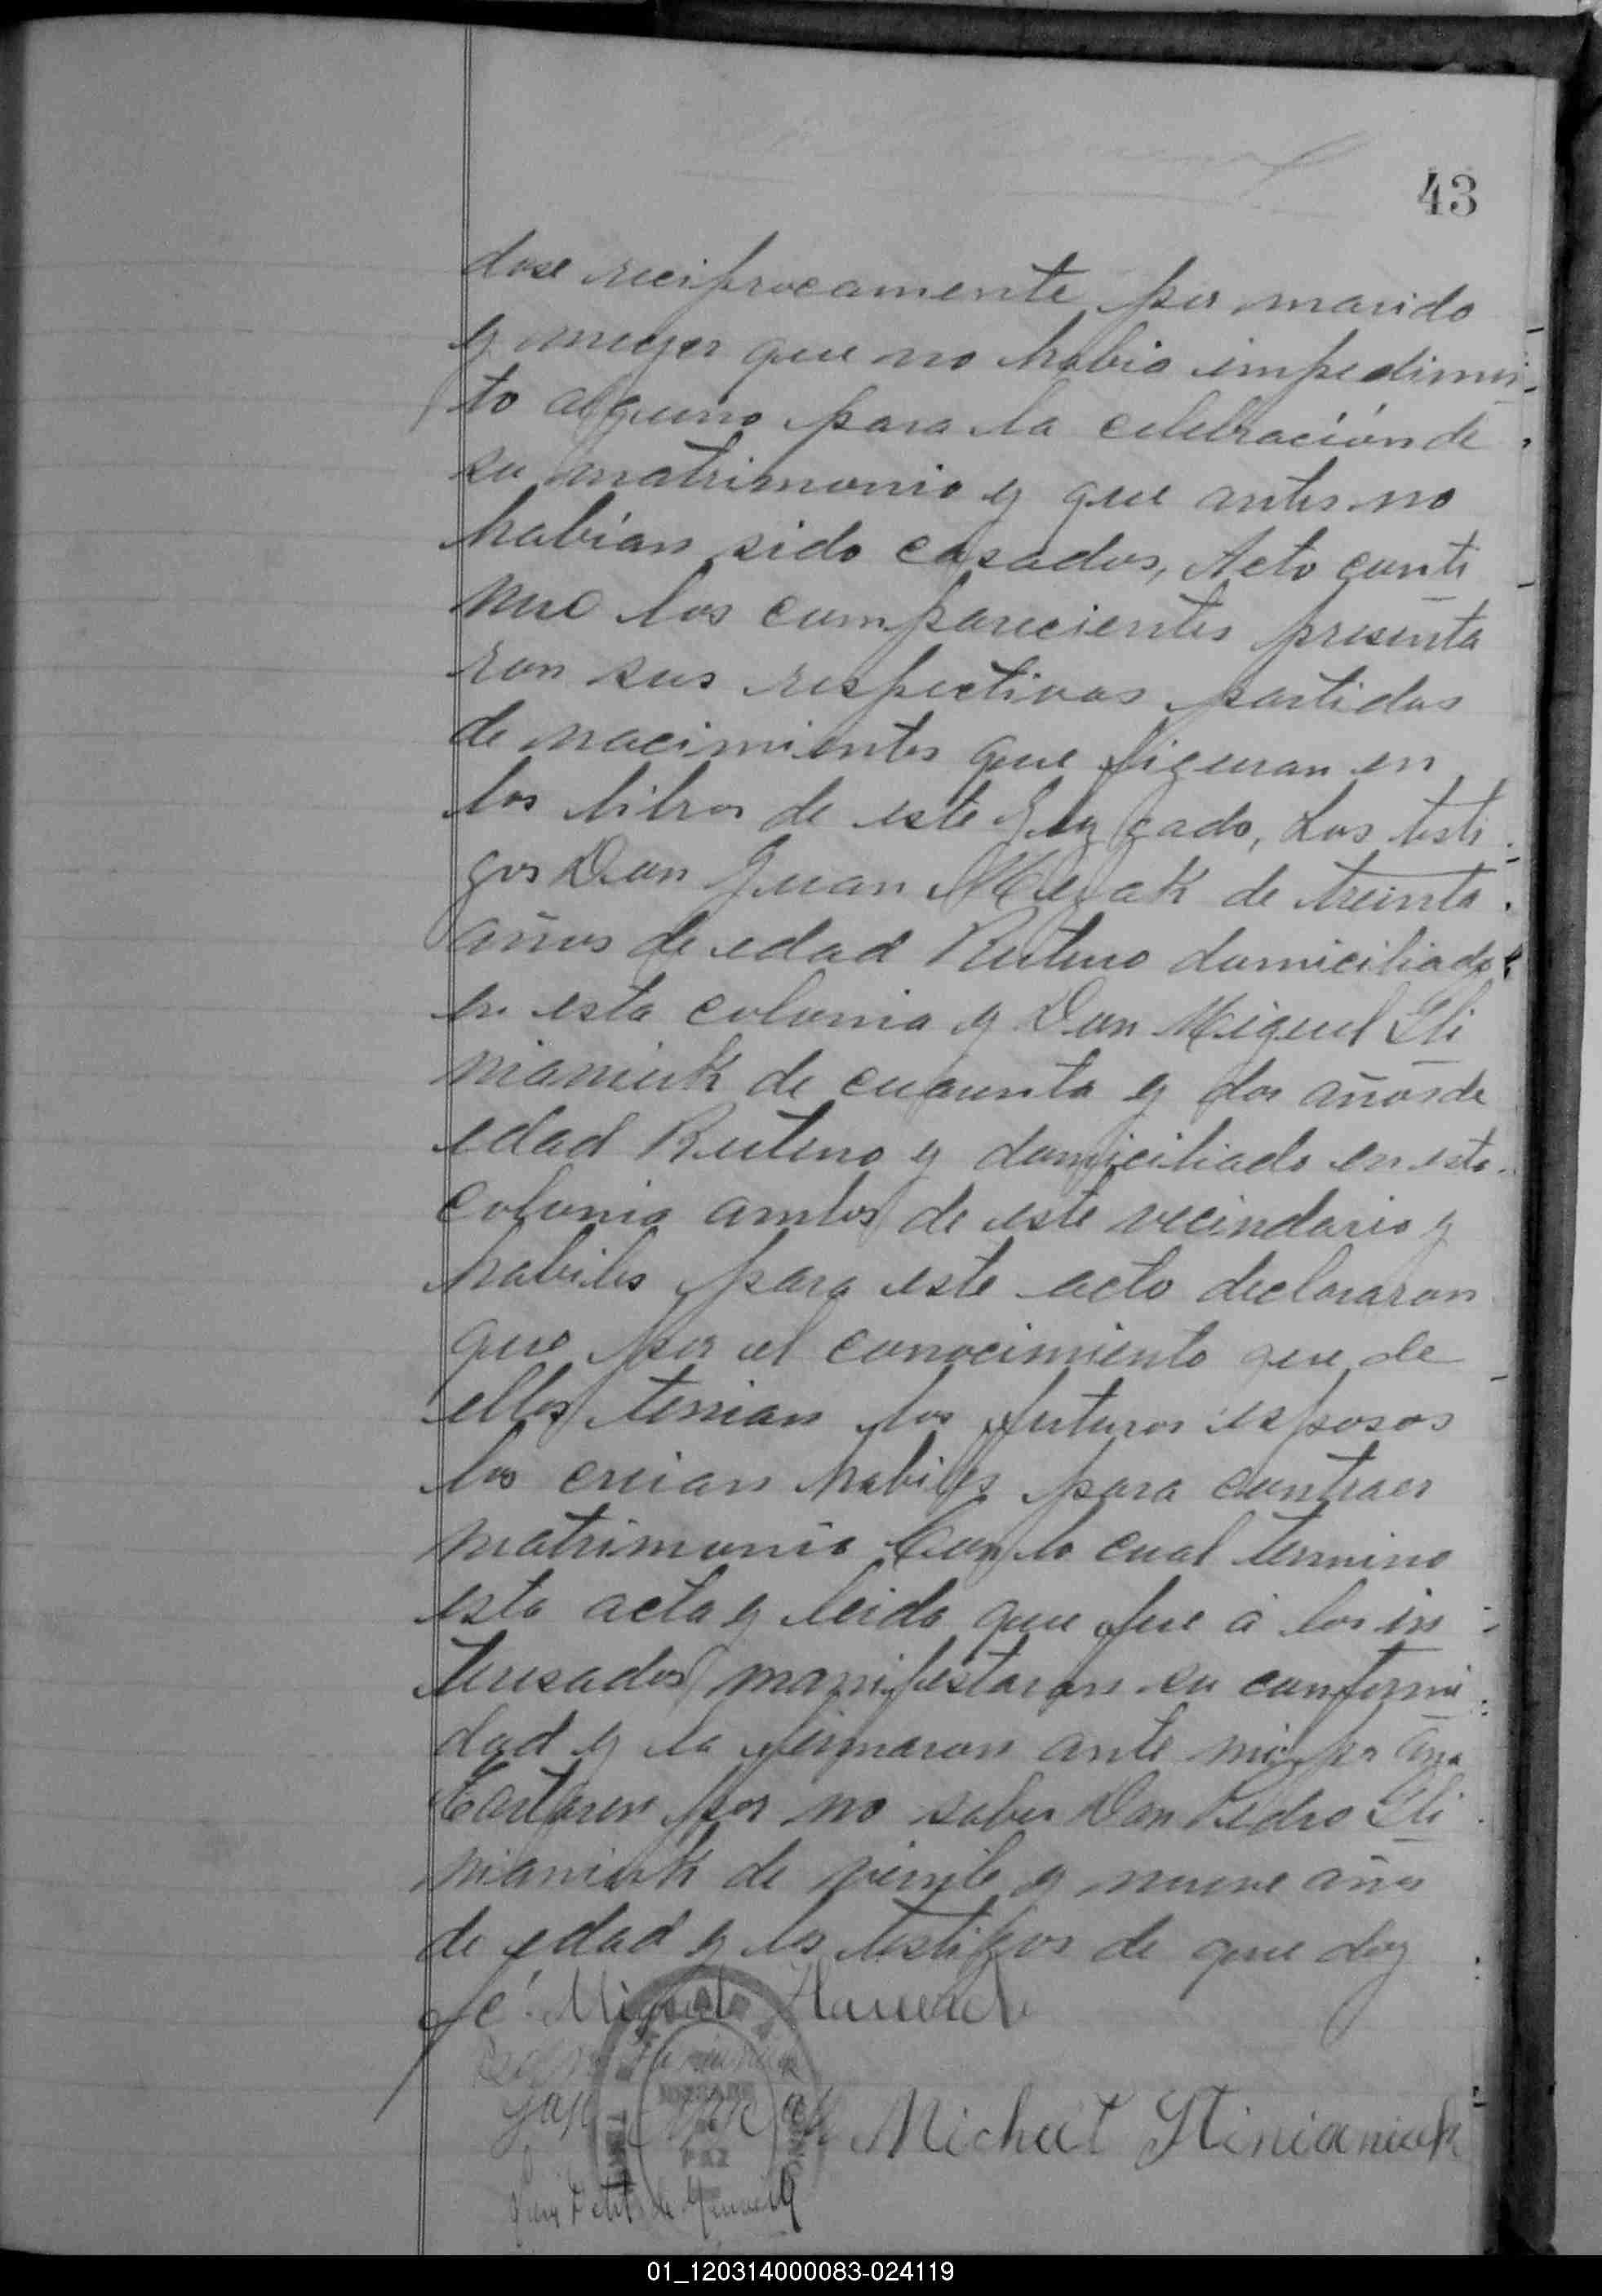 43
dose reciprocamente por marido
y muger que no habia impedimen
to alguno para la celebración de
su matrimonio y que antes no
habían sido casados, Acto conti
nuo los comparecientes presenta
ron sus respectivas partidas
de nacimientos que figuran en
los libros de este Juzgado, Los testi
gos Don Juan de treinta
años de edad Ruteno domiciliado
en esta colonia y Don Miguel Sli
nianiuk de cuarenta y dos años de
edad Ruteno y domiciliado en esta
colonia ambos de este vecindario y
habiles para este acto declararon
que por el conocimiento que de
ellos tenian los futuros esposos
los creian habiles para contraer
matrimonio Con lo cual termino
esta acta y leida que fue á los in
teresados manifestaron su conformi
dad y la firmaron ante mi por Ana
por no saber Don Pedro Sli
nianiuk de veinte y nueve años
de edad y los testigos de que doy
fé. Miguel
JUZGADO
DE
PAZ
Michał Slinianiuk
01_120314000083-024119